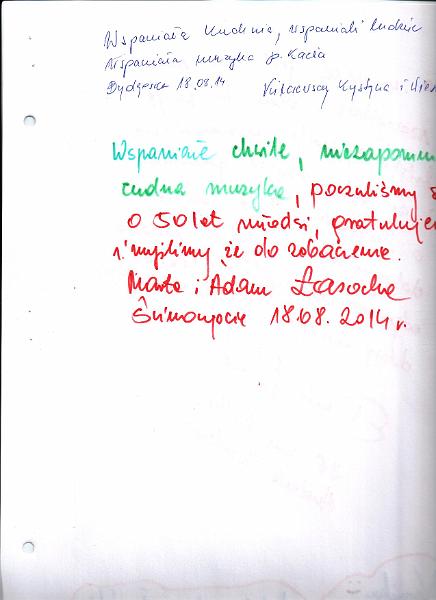 Wspaniała kuchnia, wspaniali ludzie
wspaniała muzyka p. Kazia
Bydgoszcz 18.08.14 Krystyna i
Wspaniałe chwile, niezapomn
cudna muzyka, poczuliśmy s
o 50 lat młodsi, gratuluje
i myślimy, że do zobaczenia.
Marta i Adam Łasocha
18.08.2014 r.